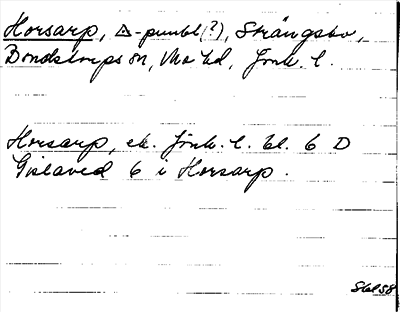 Horsarp, △-punkt(?), Strängsbo,
Bondstorps sn, Mo hd, Jönk. l.
Horsarp, ek. Jönk. l. bl. 6 D
Gislaved 6 i Horsarp.